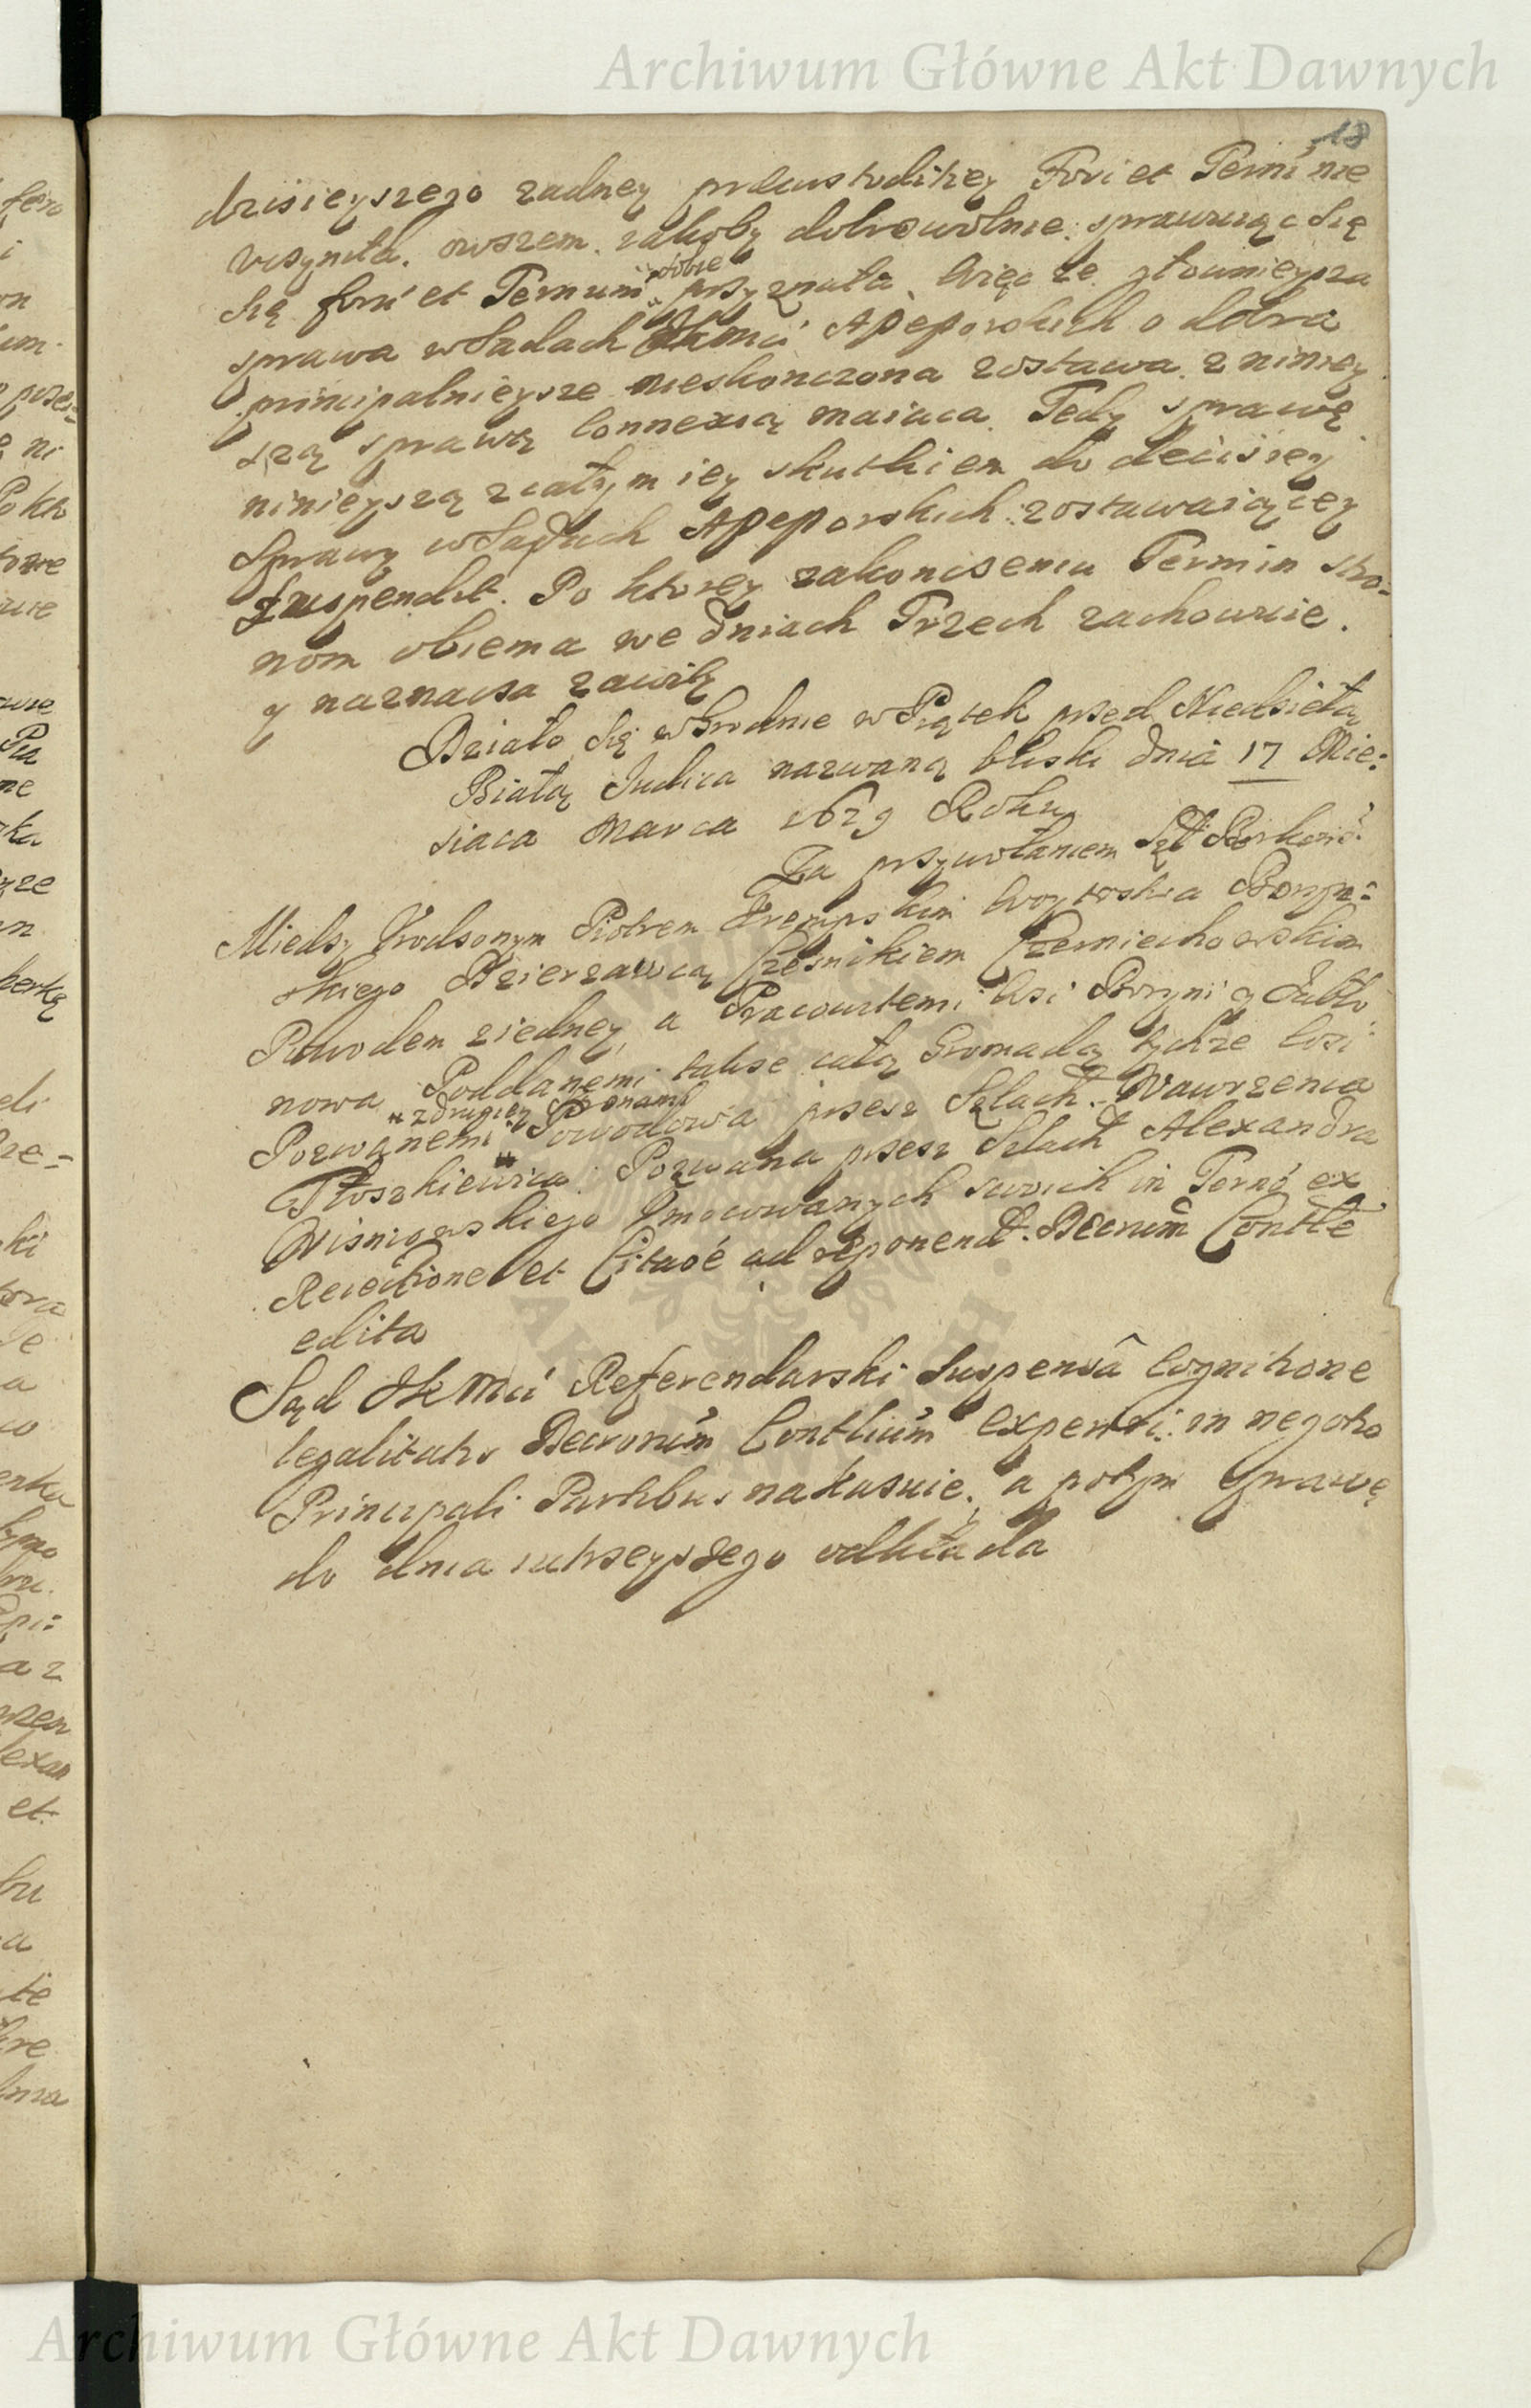 Archiwum Główne Akt Dawnych
18
dzisieyszego zadney praecustoditiey Fori et Termi nie
vczyniła. owszem. jakoby dobrowolnie. sprawuiąc Się
Się fori et Termini sobie przyznała. Więc ze głownieysza
sprawa w Sadach JKMci Apeporskich o dobra
principalnieysze nieskonczona zostawa. z niniey
szą sprawą connexią maiaca. Tedy sprawę
ninieyszą z całym iey skutkiem do decisiey
Sprawy w Sądach Apeporskich zostawaiącey
suspendit. Po ktorey zakonczeniu Termin stro-
nom obiema we dniach Trzech zachowuie.
y naznacza zawity
Działo się w Grodnie w Piątek przed Niedzielą
Białą Judica nazwaną bliski dnia 17 Mie:
siaca Marca 1679 Roku
Za przywołaniem
Miedzy Vrodzonym Piotrem woytostwa
skiego Dzierzawcą Czesnikiem Czerniechowskim
Powodem z iedney, a Pracowitemi Wsi y Jabło
nowa Poddanemi takze całą Gromadą tychze Wsi
Pozwanemi z drugiey Stronami Powodowa przesz Szlach. Wawrzenca
Pozwana przesz Szlach Alexandra
Wisniowskiego Vmocowanych swoich in Termo ex
Reiectione et Citaõe ad reponend. Decrum Contte
edita
Sąd JKMci Referendarski Suspensa cognitione
legalitatis Decrorum Conttium experiri in negotio
Principali Partibus nakazuie, a potym sprawę
do dnia iutrzeyszego odkłada
Archiwum Główne Akt Dawnych